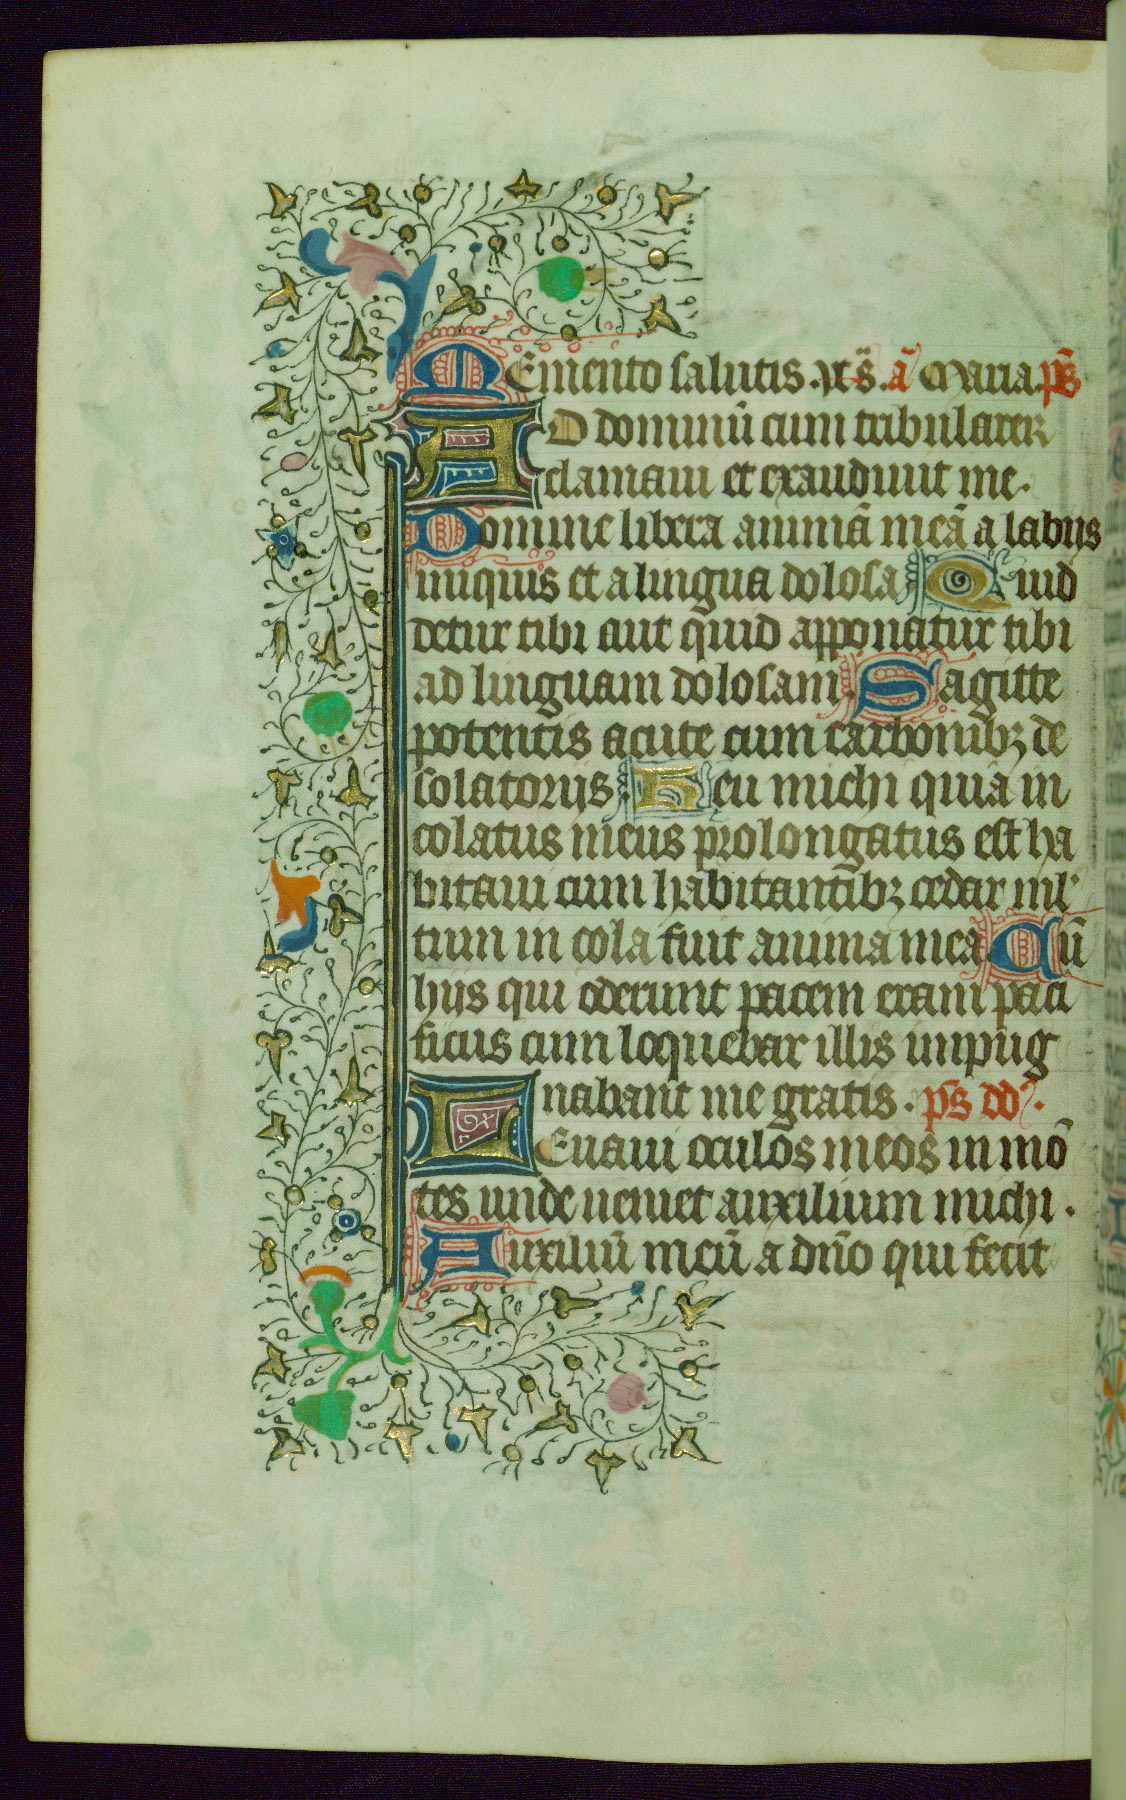 Emento salutis. xp̄s. ā Maria. p̄s
AD dominū cum tribularer
clamaui et exaudiuit me.
Domine libera animā meā a labijs
iniquis et a lingua dolosa Quid
detur tibi aut quid apponatur tibi
ad linguam dolosam. Sagitte
potentis acute cum carbonibꝫ de
solatorijs Heu michi quia in
colatus meus prolongatus est ha
bitaui cum habitantibꝫ cedar ml'
tum in cola fuit anima mea Cū
hijs qui oderunt pacem eram paci
ficus cum loquebar illis inpug
nabant me gratis. p̄s dd.
LEuaui oculos meos in mō
tes unde ueniet auxilium michi.
Auxiliū meū a dn̄o qui fecit